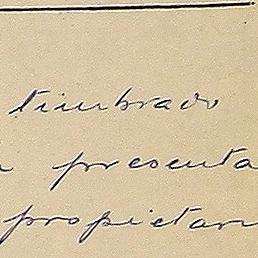 timbrado
presenta
propietar